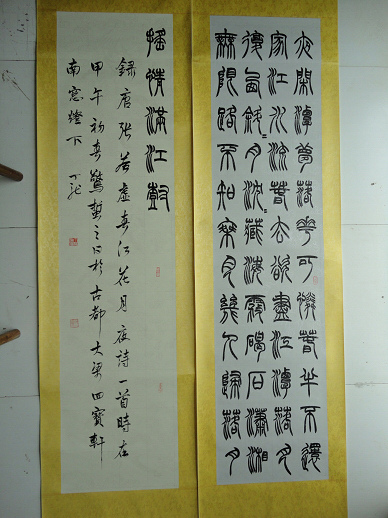 夜閑潭夢落花可憐春半不還
家江水流春去欲盡江潭落月
復西斜〻月沈〻藏海霧碣石瀟湘
無限路不知乘月幾人歸落月
搖情滿江樹
錄唐張若虛春江花月夜詩一首時在
甲午初春驚蟄之日於古都大梁四寶軒
南窓燈下